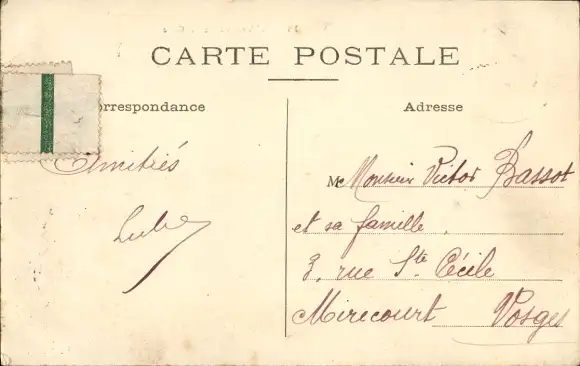 CARTE POSTALE
orrespondance
Adresse
Amitiés
M Monsieur Victor Bassot
et sa famille
3, rue Ste Cécile
Mirecourt Vosges